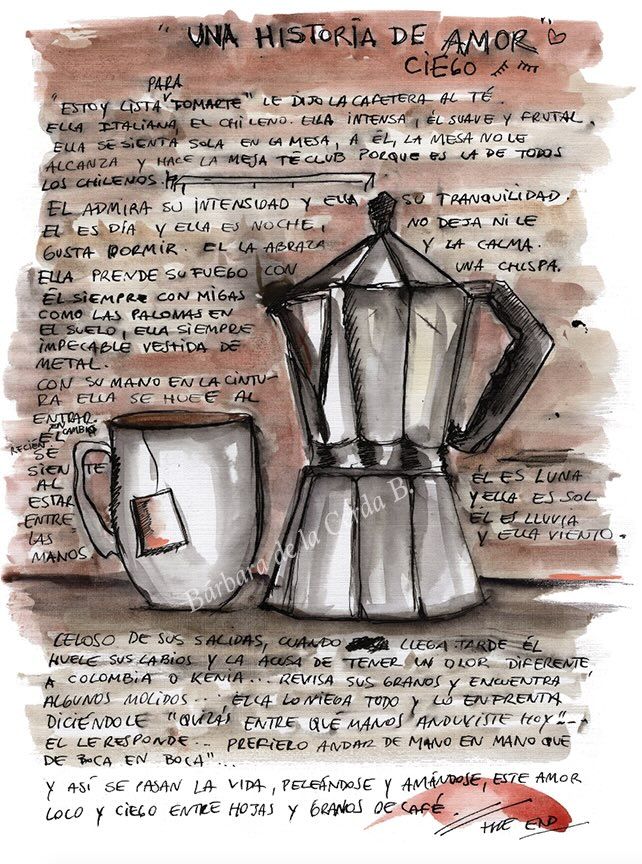 "UNA HISTORIA DE AMOR"
CIEGO
"ESTOY LISTA PARA TOMARTE" LE DIJO LA CAFETERA AL TÉ.
ELLA ITALIANA, EL CHILENO. ELLA INTENSA, ÉL SUAVE Y FRUTAL.
ELLA SE SIENTA SOLA EN LA MESA, A ÉL, LA MESA NO LE
ALCANZA Y HACE LA MEJA TÉ CLUB PORQUE ES LA DE TODOS
LOS CHILENOS.
EL ADMIRA SU INTENSIDAD Y ELLA SU TRANQUILIDAD.
EL ES DÍA Y ELLA ES NOCHE, NO DEJA NI LE
GUSTA DORMIR. EL LA ABRAZA Y LA CALMA.
ELLA PRENDE SU FUEGO CON UNA CHISPA.
ÉL SIEMPRE CON MIGAS
COMO LAS PALOMAS EN
EL SUELO, ELLA SIEMPRE
IMPECABLE VESTIDA DE
METAL.
CON SU MANO EN LA CINTU-
RA ELLA SE HUELE AL
ENTRAR.
EL EN CAMBIO
RECIEN SE
SIENTE
AL
ESTAR
ENTRE
LAS
MANOS.
ÉL ES LUNA
Y ELLA ES SOL
ÉL ES LLUVIA
Y ELLA VIENTO.
Bárbara de la Cerda B.
CELOSO DE SUS SALIDAS, CUANDO LLEGA TARDE ÉL
HUELE SUS LABIOS Y LA ACUSA DE TENER UN OLOR DIFERENTE
A COLOMBIA O KENIA... REVISA SUS GRANOS Y ENCUENTRA
ALGUNOS MOLIDOS... ELLA LO NIEGA TODO Y LO ENFRENTA
DICIÉNDOLE "QUIZÁS ENTRE QUÉ MANOS ANDUVISTE HOY"...
EL LE RESPONDE... PREFIERO ANDAR DE MANO EN MANO QUE
DE BOCA EN BOCA"...
Y ASÍ SE PASAN LA VIDA, PELEÁNDOSE Y AMÁNDOSE, ESTE AMOR
LOCO Y CIEGO ENTRE HOJAS Y GRANOS DE CAFÉ.
THE END